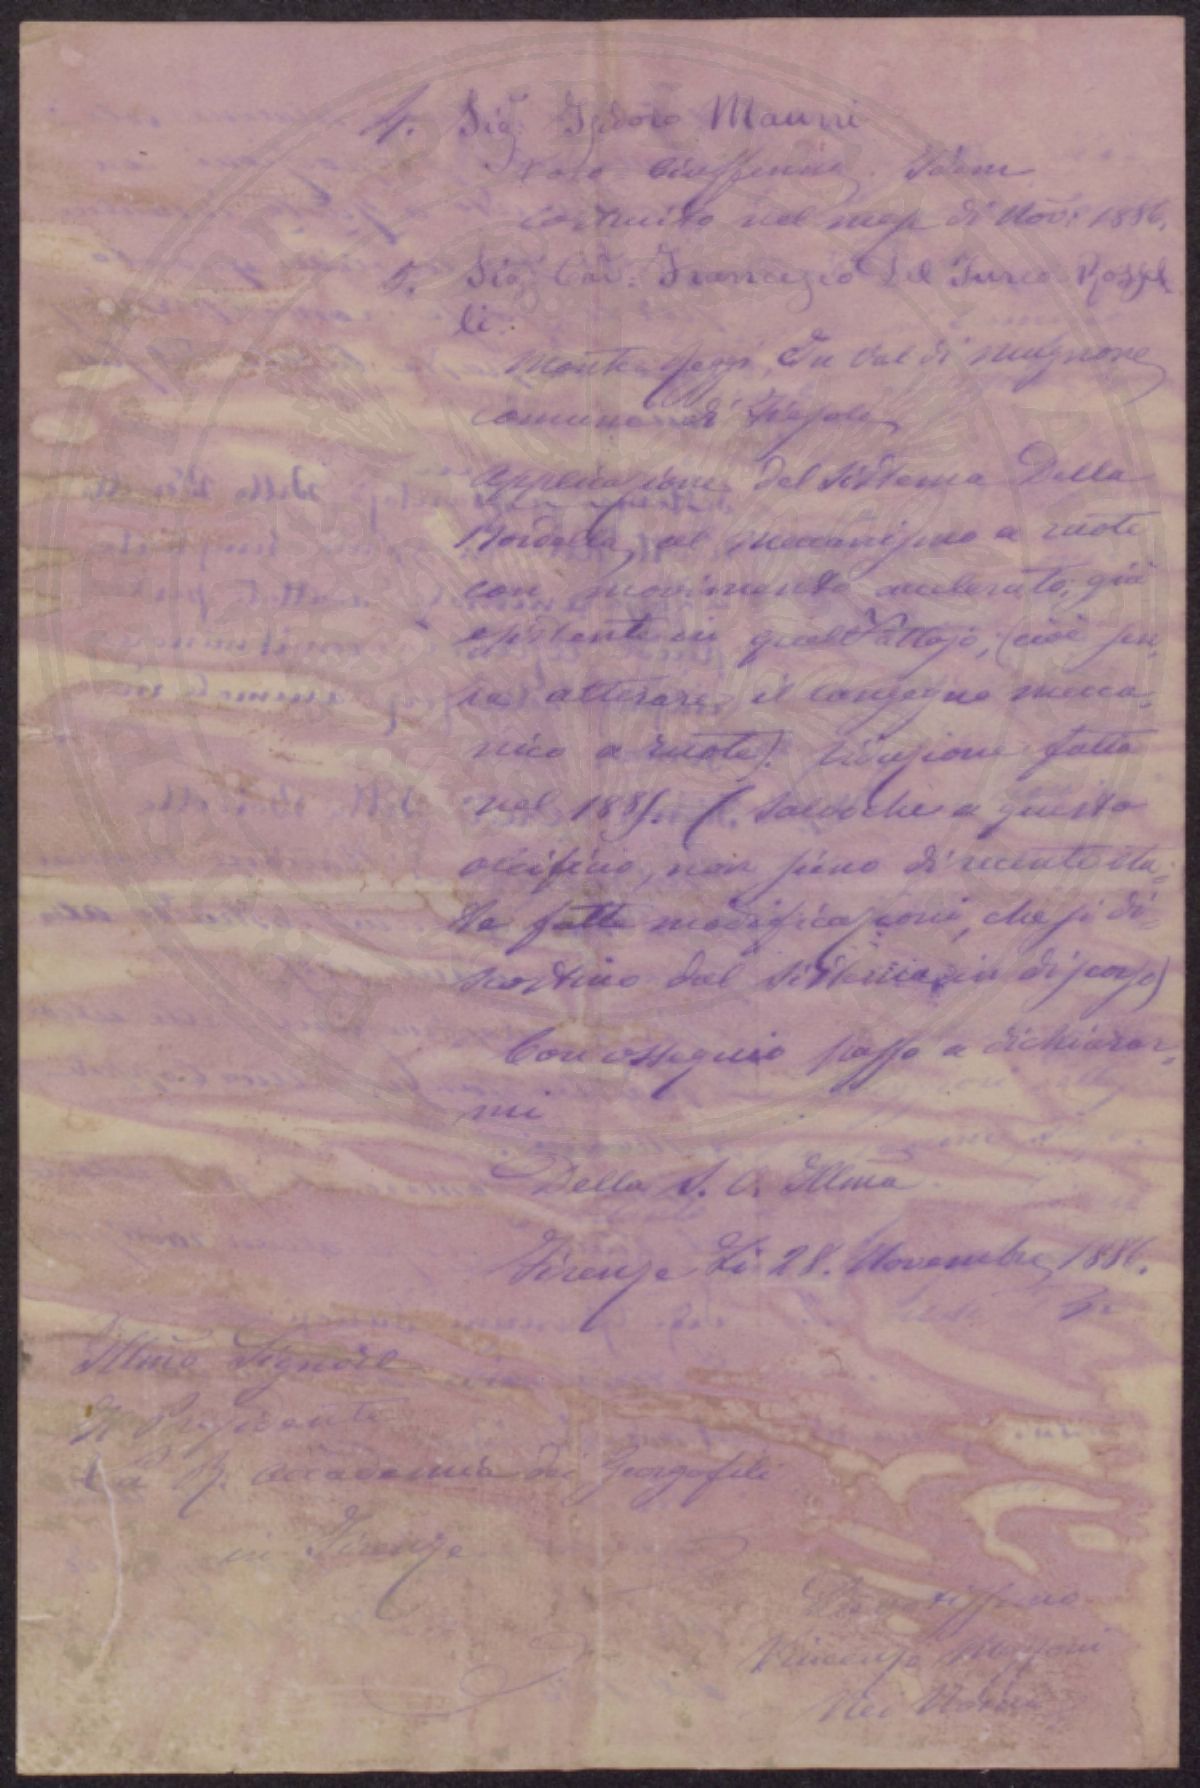 4. Sig. Isidoro Maurri
Loro Ciuffenna. Idem
Costruito nel mese di Nov: 1886.
5. Sig. Cav: Francesco Del Turco Rossel-
li.
Monte reggi, In Val di Mugnone
Comune di Fiesole
Applicazione del sistema Della
Bordella, al meccanismo a ruote
con movimento accelerato, già
esistente in quel Fattojo, (cioè sen-
za alterare il congegno mecca-
nico a ruote). riduzione fatta
nel 1885. (Salvo che a questo
oleificio, non sieno di recente sta-
te fatte modificazioni, che si di-
scostino dal sistema in discorso)
Con ossequio passo a dichiarar-
mi
Della S. V. Illma
Firenze Li 28. Novembre 1886.
Illmo Signore
Il Presidente
La R. Accademia dei Georgofili
in Firenze
Devotissimo
Vincenzo